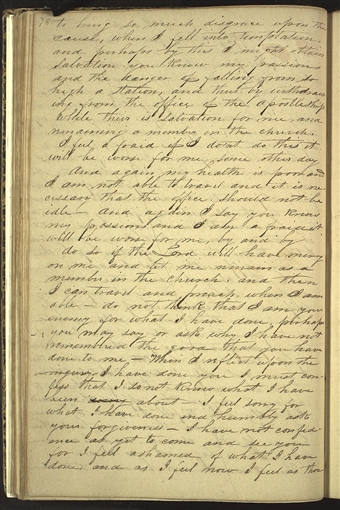 78 to bring so much disgrace upon the
cause, when I fell into temptation,
and perhaps by this I might attain
salvation you know my passions
and the danger of falling from so
high a station, and thus by withdraw
ing from the office of the apostleship
while their is salvation for me, and
remaining a member in the church.
I feel a fraid if I do'nt do this it
will be worse for me, some other day
And again my health is poor and
I am not able to travel and it is ne
cessary that the office should not be
idle — And again I say you know
my passions and I am a fraid it
will be worse for me, by and by
do so if the Lord will have mercy
on me and let me remain as a
member in the church, and then
I can travel and preach, when I am
able — do not think that I am your
enemy for what I have done, perhaps
you may say or ask why I have not
remembered the good that you have
done to me — When I reflect upon the
injury I have done you I must con-
fess that I do not know what I have
been about — I feel sorry for
what I have done and humbly ask
your forgiveness — I have not confid
ence as yet to come and see you
for I feel ashamed of what I have
done and as I feel now I feel as tho